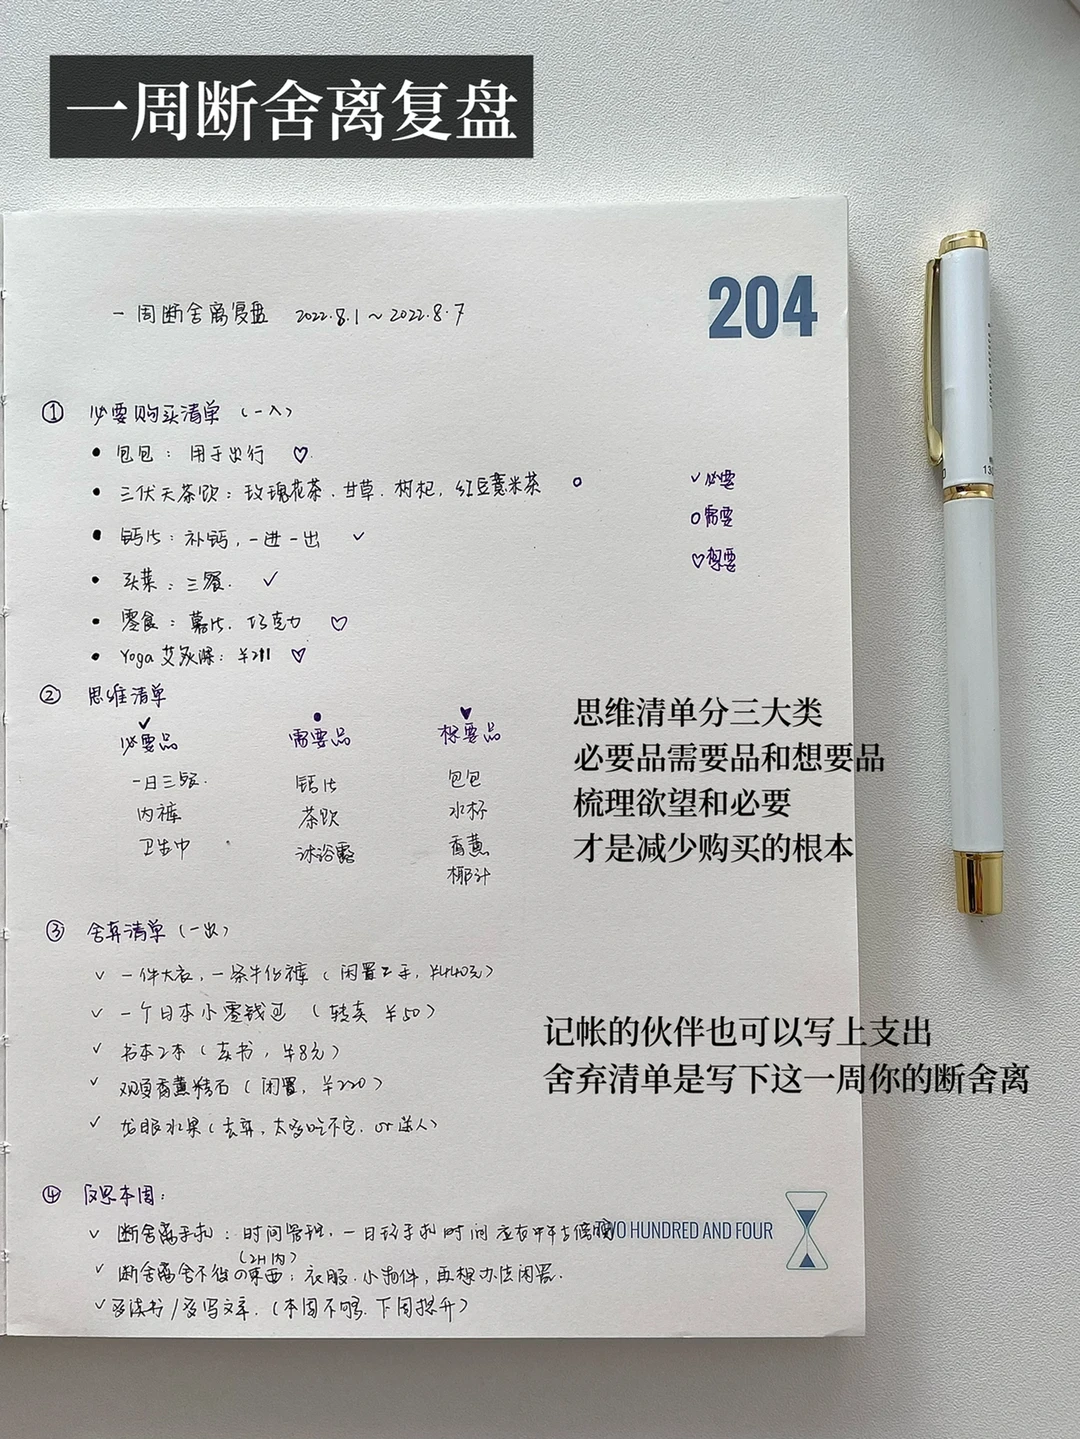 一周断舍离复盘
204
一周断舍离复盘 2022.8.1～2022.8.7
① 必要购买清单（一入）
• 包包：用于出行 ♡
• 三伏天茶饮：玫瑰花茶、甘草、枸杞、红豆薏米茶 ○
✓必要
○需要
♡想要
• 钙片：补钙，一进一出 ✓
• 买菜：三餐. ✓
• 零食：薯片、巧克力 ♡
• Yoga 艾灸课：¥211 ♡
② 思维清单
✓ 必要品
● 需要品
♥ 想要品
一日三餐.
钙片
包包
内裤
茶饮
水杯
卫生巾
沐浴露
香薰
椰汁
思维清单分三大类
必要品需要品和想要品
梳理欲望和必要
才是减少购买的根本
③ 舍弃清单（一出）
✓ 一件大衣，一条牛仔裤（闲置二手，¥440元）
✓ 一个日本小零钱包（转卖 ¥50）
✓ 书本2本（卖书，¥8元）
✓ 观夏香薰精石（闲置，¥220）
✓ 龙眼水果（丢弃，太多吃不完. or送人）
记帐的伙伴也可以写上支出
舍弃清单是写下这一周你的断舍离
④ 反思本周：
✓ 断舍离手机：时间管理，一日玩手机时间
（2H内）
TWO HUNDRED AND FOUR
✓ 断舍离舍不得の東西：衣服、小物件，再想办法闲置.
✓ 多读书/多写文章.（本周不够. 下周提升）